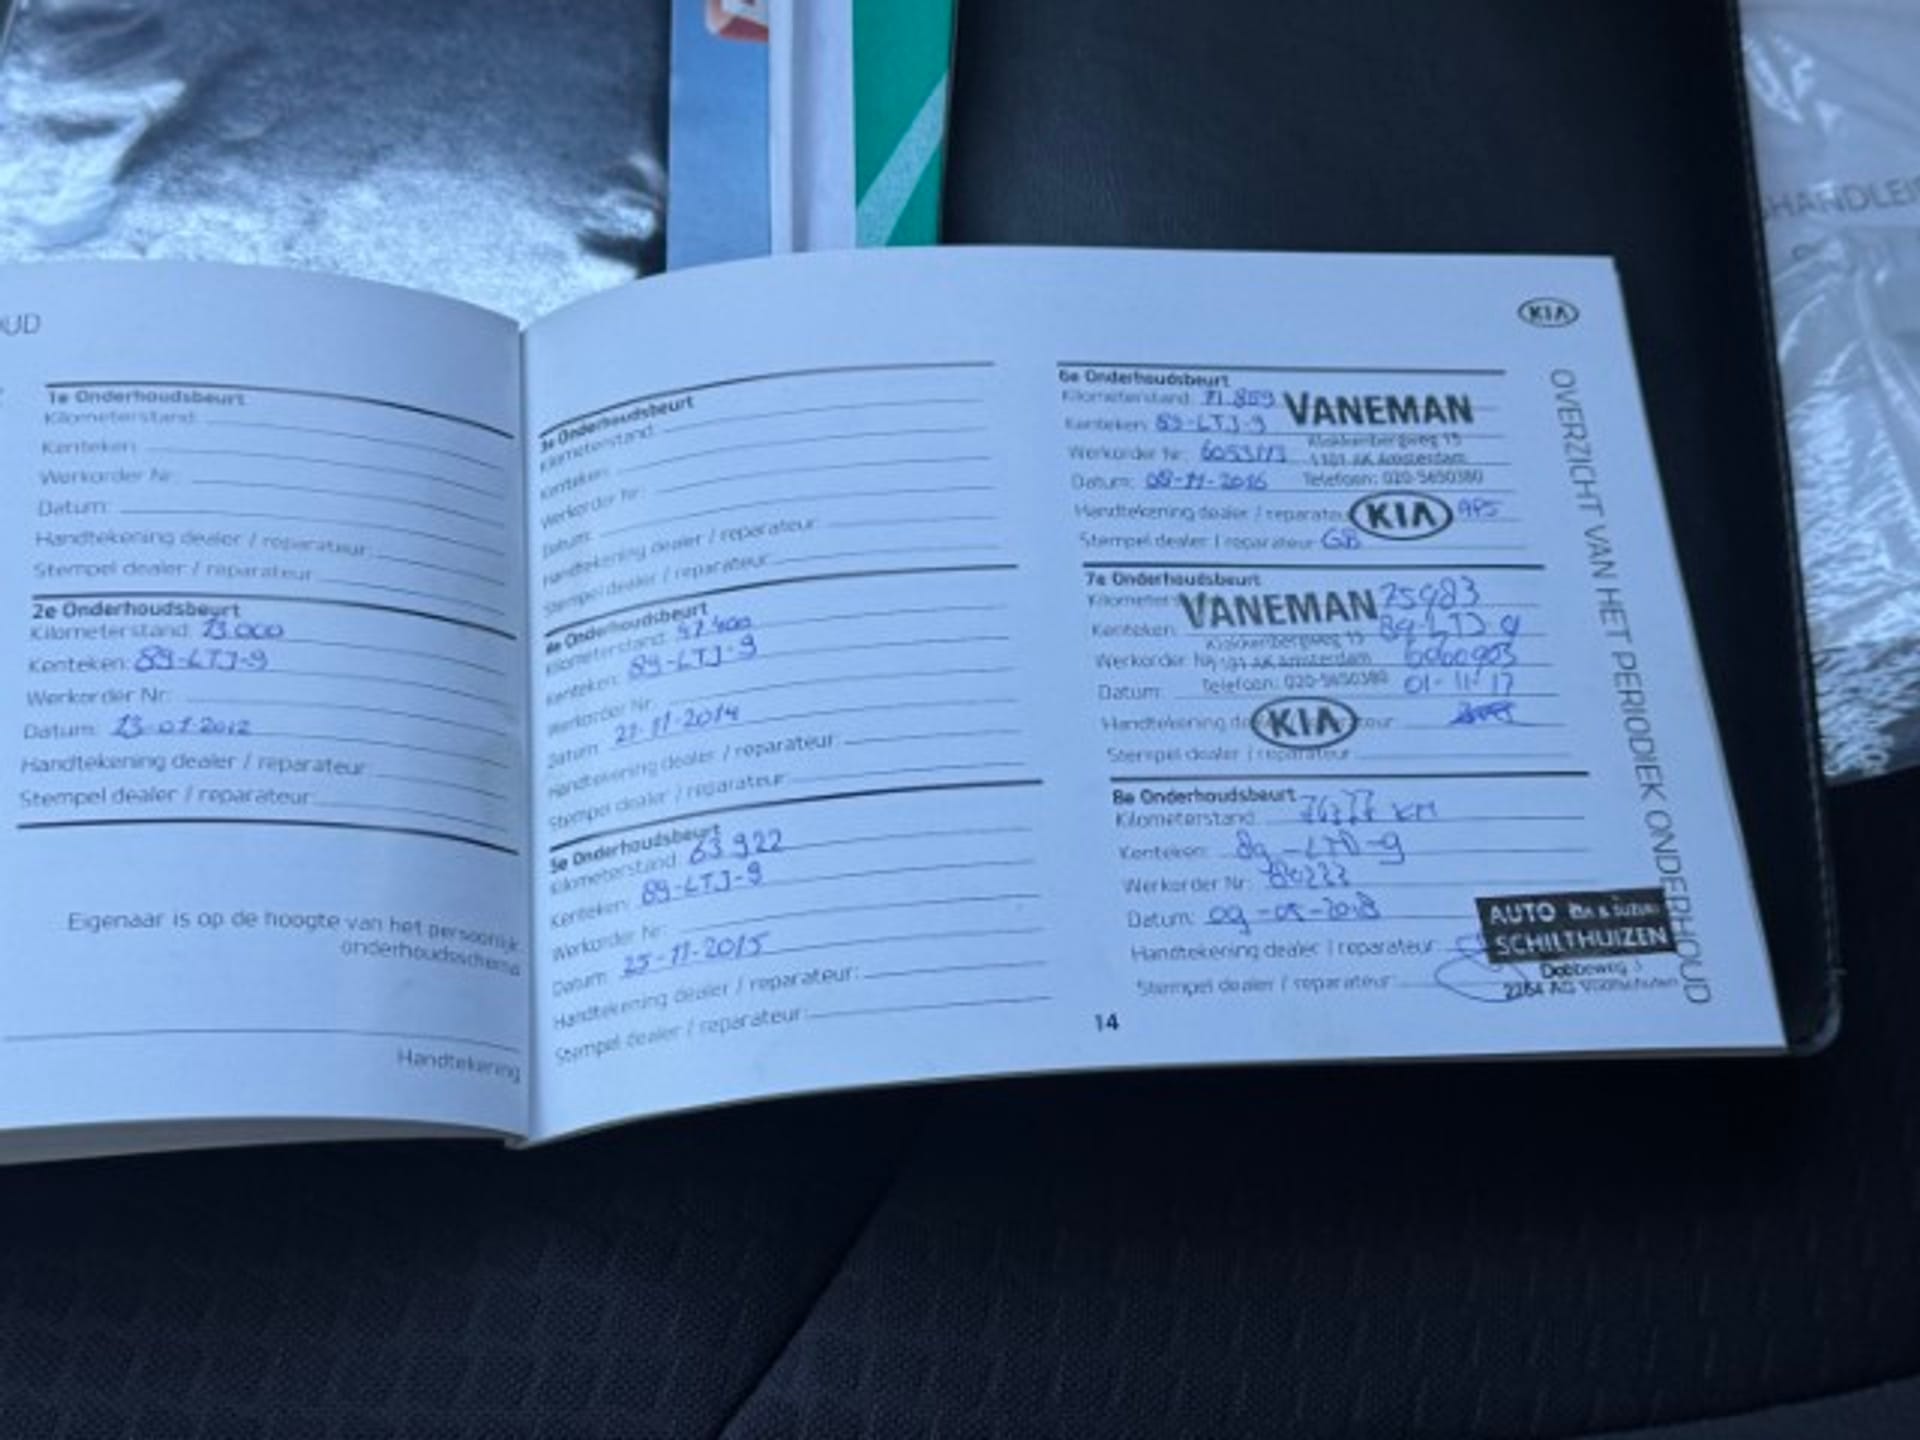 HANDLEI
OUD
1e Onderhoudsbeurt
Kilometerstand:
Kenteken:
Werkorder Nr:
Datum:
Handtekening dealer / reparateur:
Stempel dealer / reparateur:
2e Onderhoudsbeurt
Kilometerstand: 13000
Kenteken: 89-LTJ-9
Werkorder Nr:
Datum: 13-01-2012
Handtekening dealer / reparateur:
Stempel dealer / reparateur:
Eigenaar is op de hoogte van het persoonlijk
onderhoudsschema
Handtekening
3e Onderhoudsbeurt
Kilometerstand:
Kenteken:
Werkorder Nr:
Datum:
Handtekening dealer / reparateur:
Stempel dealer / reparateur:
4e Onderhoudsbeurt
Kilometerstand: 57.400
Kenteken: 89-LTJ-9
Werkorder Nr:
Datum: 21-11-2014
Handtekening dealer / reparateur:
Stempel dealer / reparateur:
5e Onderhoudsbeurt
Kilometerstand: 63922
Kenteken: 89-LTJ-9
Werkorder Nr:
Datum: 25-11-2015
Handtekening dealer / reparateur:
Stempel dealer / reparateur:
KIA
6e Onderhoudsbeurt
Kilometerstand: 71.859 VANEMAN
Kenteken: 89-LTJ-9 Klokkenbergweg 15
Werkorder Nr: 1101 AK Amsterdam
Datum: 08-11-2016 Telefoon: 020-5650380
Handtekening dealer / reparateu KIA
Stempel dealer / reparateur GB
7e Onderhoudsbeurt
Kilometer VANEMAN 75983
Kenteken: Klokkenbergweg 15 89-LTJ-9
Werkorder Nr 1101 AK Amsterdam 6060903
Datum: Telefoon: 020-5650380 01-11-17
Handtekening dealer / reparateur KIA
Stempel dealer / reparateur:
8e Onderhoudsbeurt
Kilometerstand: KM
Kenteken:
Werkorder Nr: 80222
Datum: 09-05-2018
Handtekening dealer / reparateur:
Stempel dealer / reparateur:
AUTO Kia & Suzuki
SCHILTHUIZEN
Dobbeweg 3
2254 AG Voorschoten
14
OVERZICHT VAN HET PERIODIEK ONDERHOUD